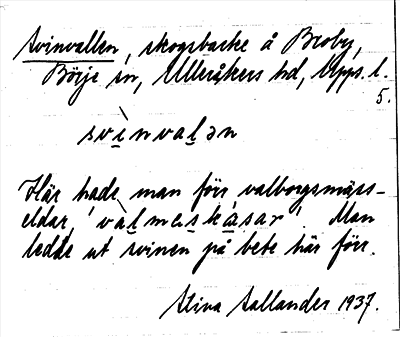 Svinvallen, skogsbacke å Broby,
Börje sn, Ulleråkers hd, Upps. l.
5.
svìnvalən
Här hade man förr valborgsmäss-
eldar, 'vàlmɛskásar'. Man
ledde ut svinen på bete här förr.
Stina Sallander 1937.